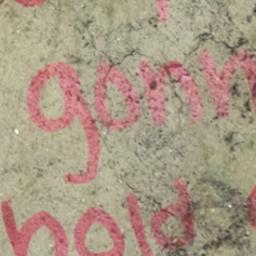 gonn
hold